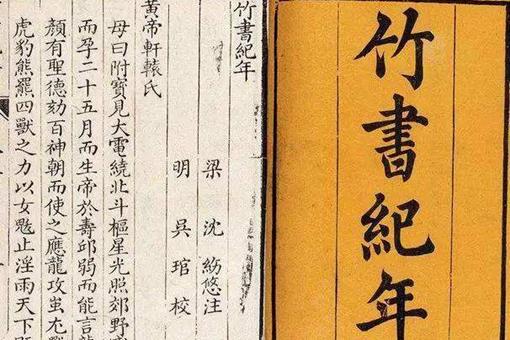 竹書紀年
竹書紀年
梁 沈 約附注
明 吳 琯 校
黃帝軒轅氏
母曰附寶見大電繞北斗樞星光照郊野感
而孕二十五月而生帝於壽邱弱而能言龍
顏有聖德劾百神朝而使之應龍攻蚩尤戰
虎豹熊羆四獸之力以女魃止淫雨天下既